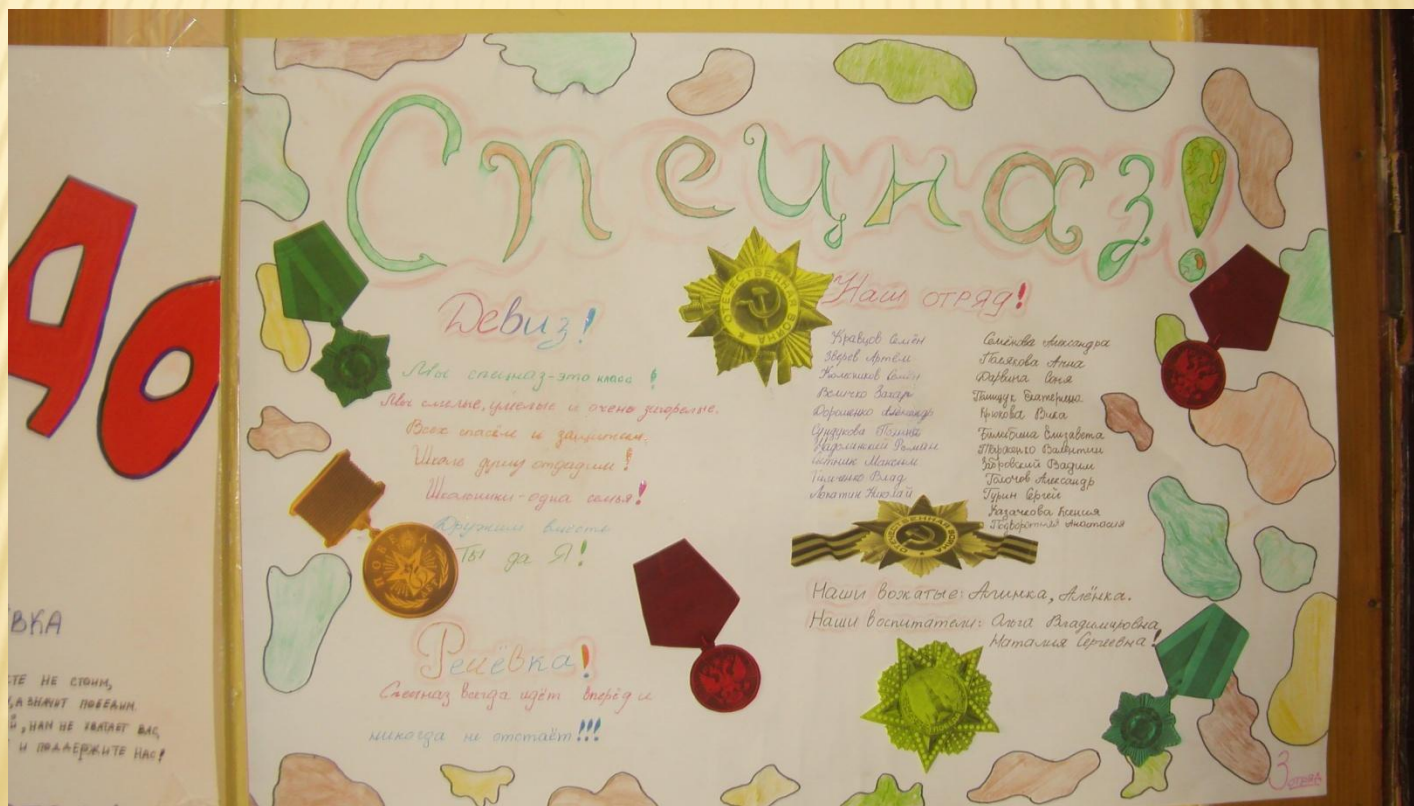 ДО
ВКА
ТЕ НЕ СТОИМ,
А ЗНАЧИТ ПОБЕДИМ.
, НАМ НЕ ХВАТАЕТ ВАС,
И ПОДДЕРЖИТЕ НАС!
Спецназ!
Девиз!
Мы спецназ-это класс!
Мы смелые, умелые и очень загорелые.
Всех спасём и защитим.
Школе душу отдадим!
Школьники-одна семья!
Дружим вместе
Ты да Я!
ПОБЕДА
Речёвка!
Спецназ всегда идёт вперёд и
никогда не отстаёт!!!
ОТЕЧЕСТВЕННАЯ ВОЙНА
Наш отряд!
Кравцов Семён
Зверев Артём
Семён
Величко Захар
Дорошенко Александр
Сундукова Полина
Надолинский Роман
Максим
Тимченко Влад
Николай
Семёнова Александра
Полякова Анна
Дарвина Соня
Екатерина
Крюкова Вика
Елизавета
Пархоменко Валентин
Вадим
Толочов Александр
Гурин Сергей
Казачкова Ксения
Анастасия
ОТЕЧЕСТВЕННАЯ ВОЙНА
Наши вожатые: Алинка, Алёнка.
Наши воспитатели: Ольга Владимировна,
Наталия Сергеевна!
3 отряд